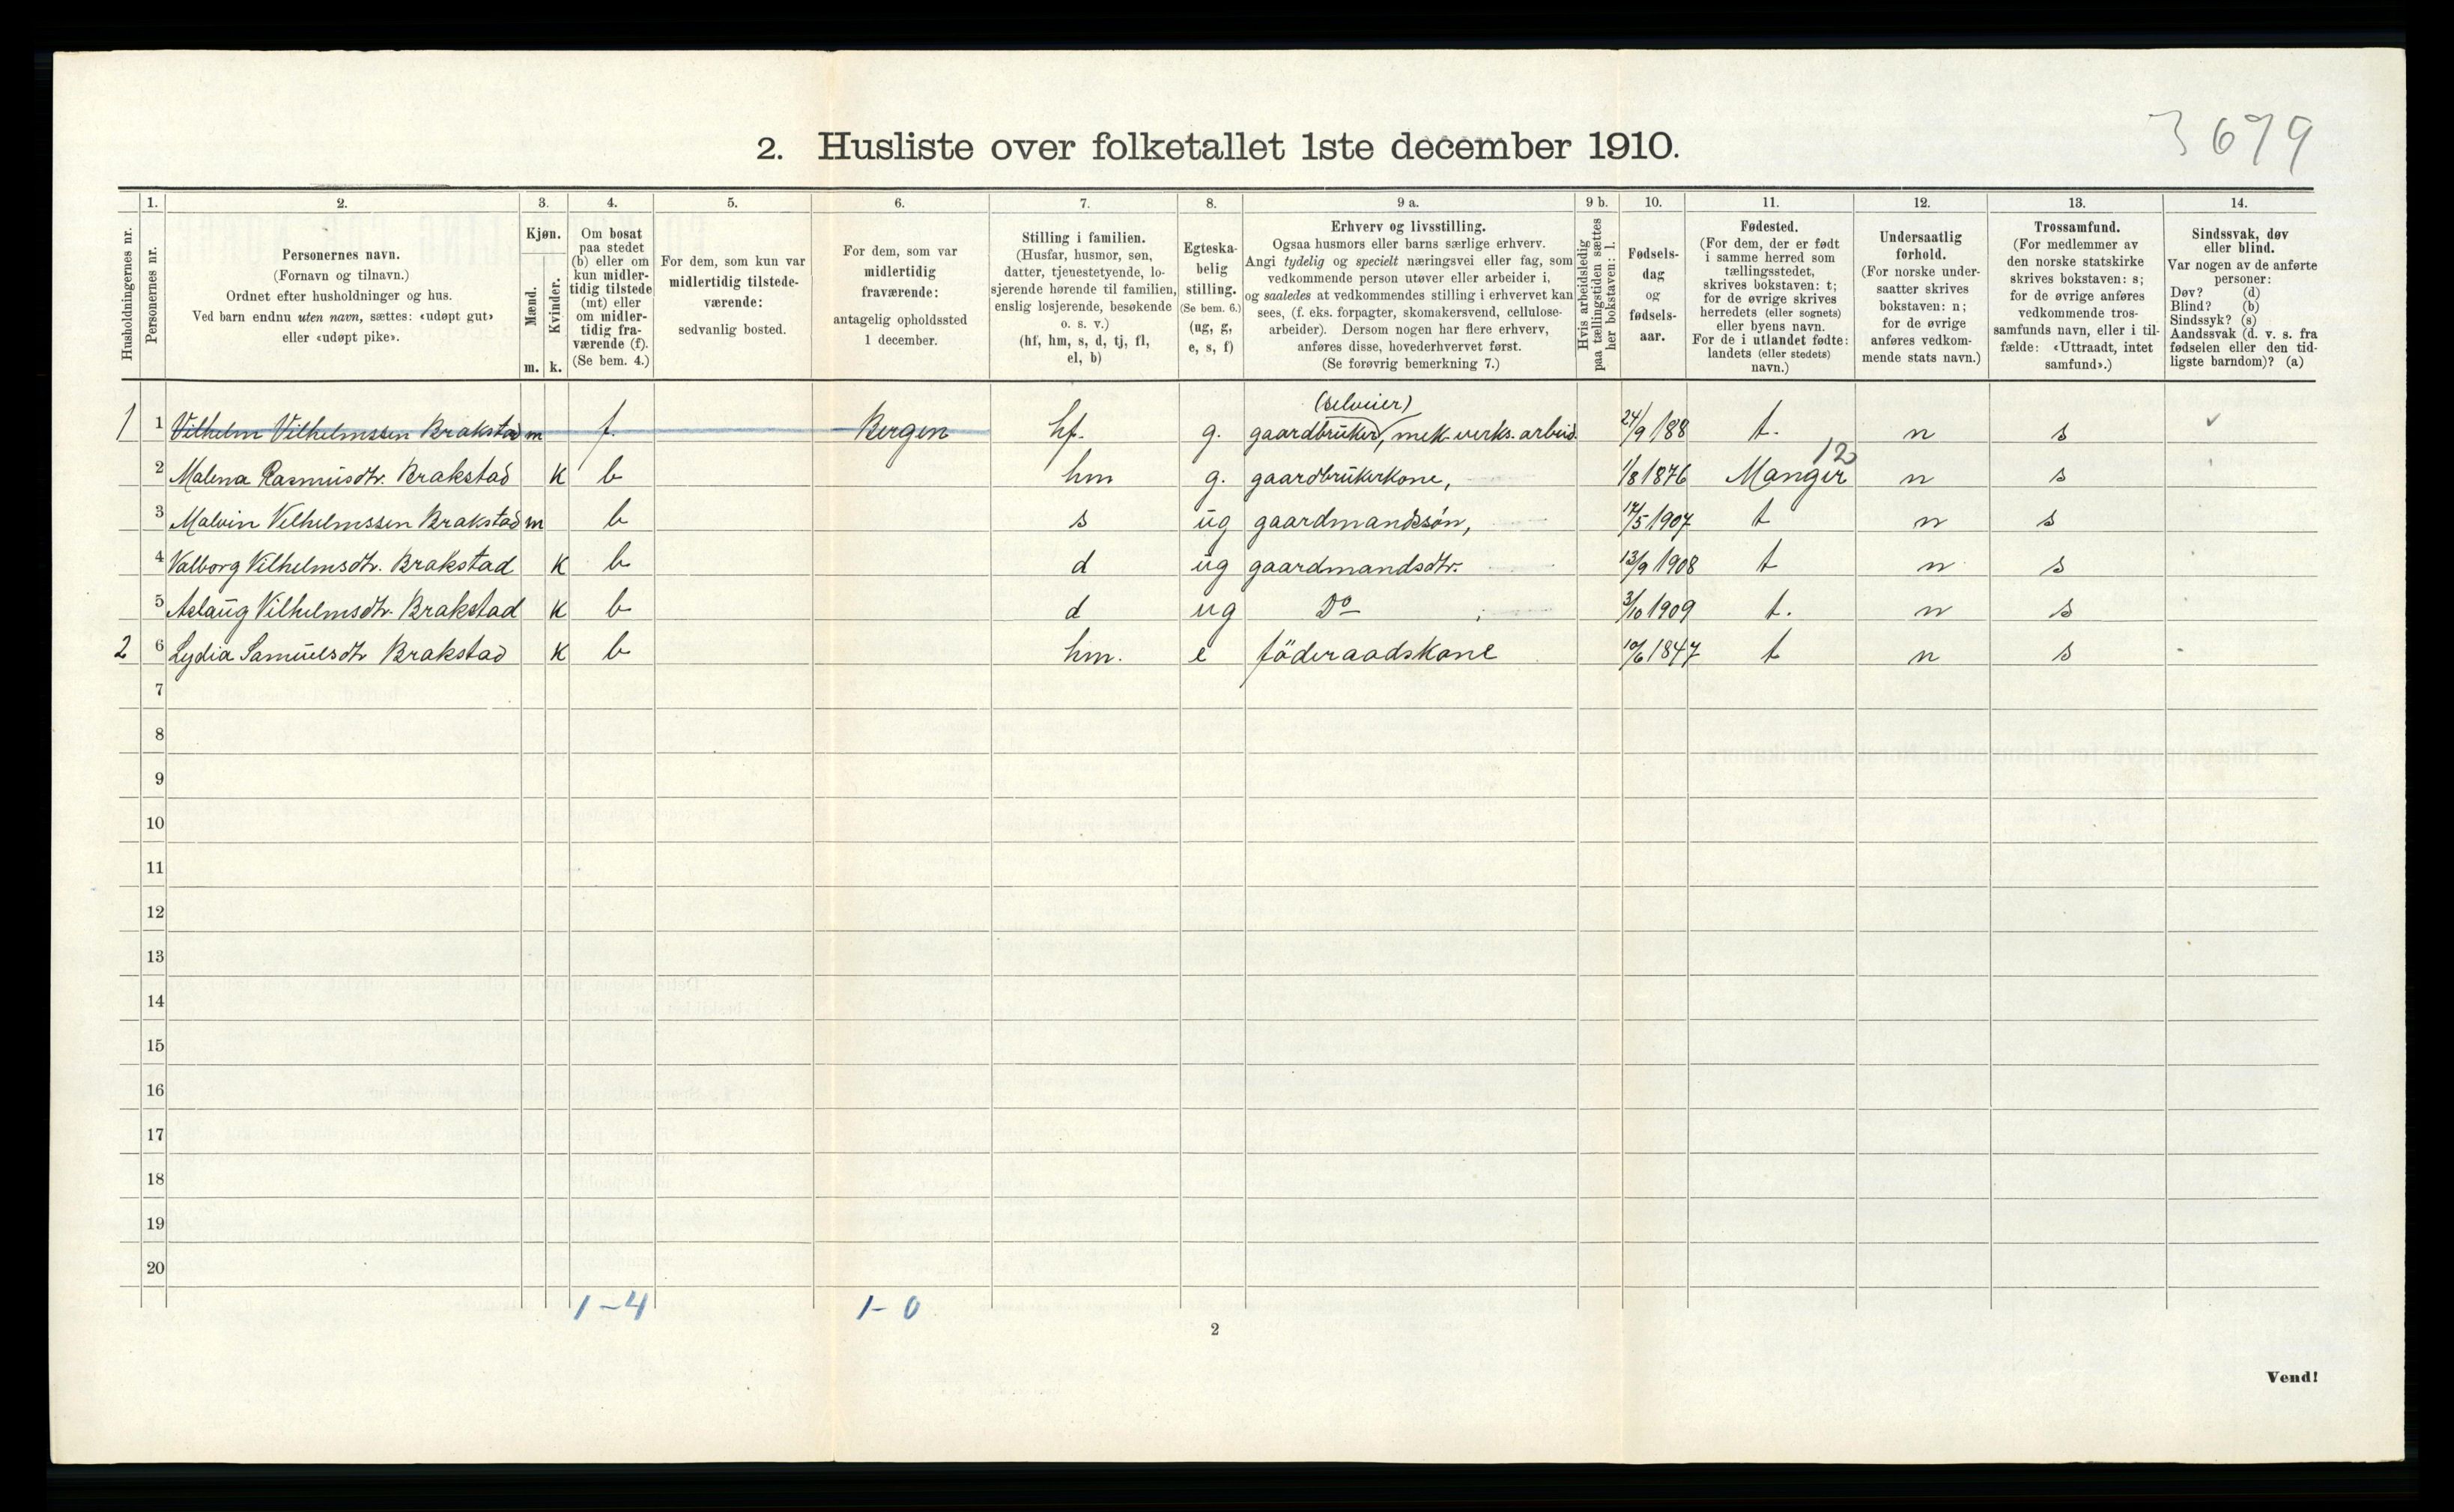 3679
2. Husliste over folketallet 1ste december 1910.
1. 2. 3. 4. 5. 6. 7. 8. 9 a. 9 b. 10. 11. 12. 13. 14.
Husholdningernes nr.
Personernes nr.
Personernes navn.
(Fornavn og tilnavn.)
Ordnet efter husholdninger og hus.
Ved barn endnu uten navn, sættes: «udøpt gut»
eller «udøpt pike».
Kjøn.
Mænd.
Kvinder.
m. k.
Om bosat
paa stedet
(b) eller om
kun midler-
tidig tilstede
(mt) eller
om midler-
tidig fra-
værende (f).
(Se bem. 4.)
For dem, som kun var
midlertidig tilstede-
værende:
sedvanlig bosted.
For dem, som var
midlertidig
fraværende:
antagelig opholdssted
1 december.
Stilling i familien.
(Husfar, husmor, søn,
datter, tjenestetyende, lo-
sjerende hørende til familien,
enslig losjerende, besøkende
o. s. v.)
(hf, hm, s, d, tj, fl,
el, b)
Egteska-
belig
stilling.
(Se bem. 6.)
(ug, g,
e, s, f)
Erhverv og livsstilling.
Ogsaa husmors eller barns særlige erhverv.
Angi tydelig og specielt næringsvei eller fag, som
vedkommende person utøver eller arbeider i,
og saaledes at vedkommendes stilling i erhvervet kan
sees, (f. eks. forpagter, skomakersvend, cellulose-
arbeider). Dersom nogen har flere erhverv,
anføres disse, hovederhvervet først.
(Se forøvrig bemerkning 7.)
Hvis arbeidsledig
paa tællingstiden sættes
her bokstaven: l.
Fødsels-
dag
og
fødsels-
aar.
Fødested.
(For dem, der er født
i samme herred som
tællingsstedet,
skrives bokstaven: t;
for de øvrige skrives
herredets (eller sognets)
eller byens navn.
For de i utlandet fødte:
landets (eller stedets)
navn.)
Undersaatlig
forhold.
(For norske under-
saatter skrives
bokstaven: n;
for de øvrige
anføres vedkom-
mende stats navn.)
Trossamfund.
(For medlemmer av
den norske statskirke
skrives bokstaven: s;
for de øvrige anføres
vedkommende tros-
samfunds navn, eller i til-
fælde: «Uttraadt, intet
samfund».)
Sindssvak, døv
eller blind.
Var nogen av de anførte
personer:
Døv? (d)
Blind? (b)
Sindssyk? (s)
Aandssvak (d. v. s. fra
fødselen eller den tid-
ligste barndom)? (a)
(selveier)
1 1 Vilhelm Vilhelmssen Brakstad m f. Bergen hf. g. gaardbruker, mek. verks. arbeid. 24/9 188 t. n s ✓
12
2 Malena Rasmusdtr. Brakstad k b hm g. gaardbrukerkone, 1/8 1876 Manger n s
3 Malvin Vilhelmssen Brakstad m b s ug gaardmandssøn, 17/5 1907 t n s
4 Valborg Vilhelmsdtr. Brakstad k b d ug gaardmandsdtr. 13/9 1908 t n s
5 Aslaug Vilhelmsdtr. Brakstad k b d ug Do 3/10 1909 t. n s
2 6 Lydia Samuelsdtr Brakstad k b hm. e föderaadskone 10/6 1847 t n s
7
8
9
10
11
12
13
14
15
16
17
18
19
20
1-4 1-0
2
Vend!